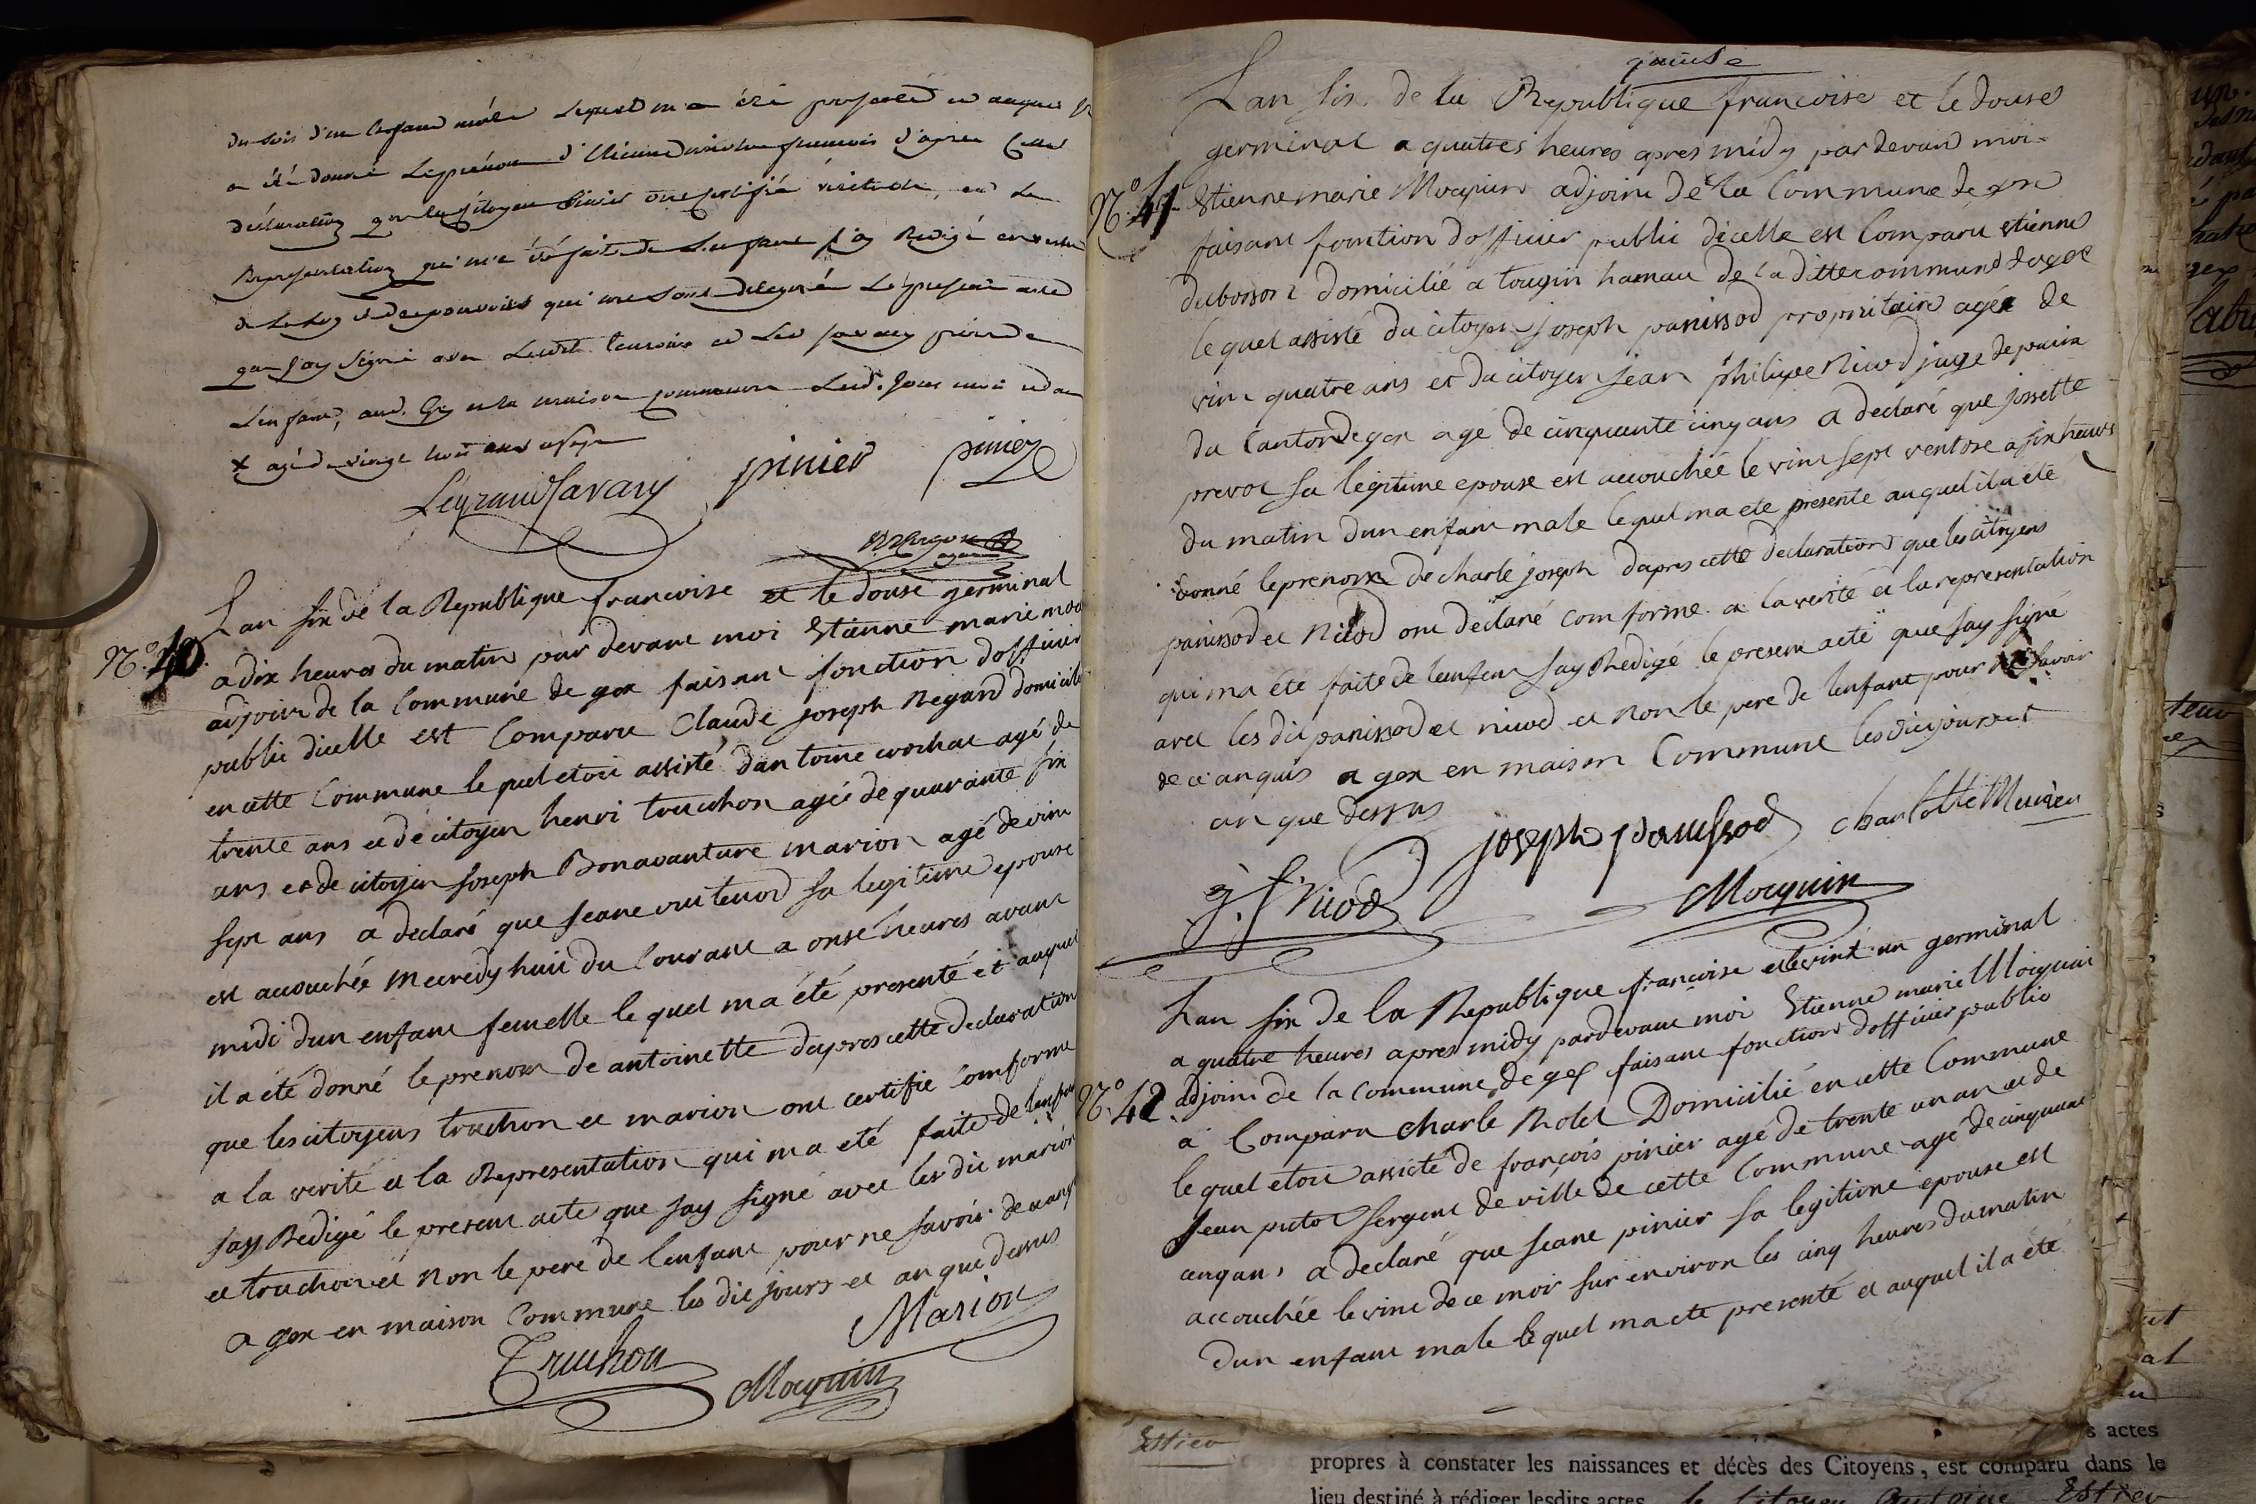 du soir d'un Enfant mâle Lequel m'a été présenté et auquel il
a été donné Le prénom d' françois d'après Cette
déclaration que les Citoyens ont certifié véritable, et la
Représentation qui m'a été faite de L'enfant j'ay Redigé en vertu
de la Loy des pouvoirs qui me sont délégués Le présent acte
que j'ay signé avec Lesdits temoins et Led. Savary père de
L'enfant, aud. Gex en la maison commune Lesd. Jour mois et an
X agé de vingt huit ans
Legrand Savary pinier pinier
N.o 40
Lan six de la Republique francoise et le douse germinal
a dix heures du matin par devant moi Etienne marie moc
adjoint de la Commune de gex faisant fonction dofficier
public dicelle est Comparu Claude joseph Regard domicilié
en cette Commune le quel etoit assisté dantoine crochat agé de
trente ans et de citoyen henri truchon agée de quarante six
ans et de citoyen joseph Bonavanture marion agé de vint
sept ans a declaré que jeane sa legitime epouse
est accouchée mecredy huit du Courant a onse heures avant
midi dun enfant femelle le quel ma été presenté et auquel
il a été donné le prenom de antoinette dapres cette declaration
que les citoyens truchon et marion ont certifie Comforme
a la verité et la Representation qui ma eté faite de lenfan
jay Redigé le present acte que jay signé avec les dit marion
et truchon et non le pere de lenfant pour ne savoir de ce anq
a gex en maison Commune les dit jours et an que dessus
Truchon Marion
Mocquin
Lan six de la Republique francoise et le douse
germinal a quatres heures apres midy par devand moi
N.o 41
Etienne marie Mocquin adjoint de la Commune de gex
faisant fonction dofficier public dicelle est Comparu etienne
dubosson domicilié a tougin hamau de la ditte commune de gex
le quel assisté du citoyen joseph panissod propriitaire agée de
vint quatre ans et du citoyen jean philippe nicod juge de paix
du Canton de gex agé de cinquante cinq ans a declaré que josette
prevot sa legitime epouse est accouchée le vint sept ventose a six heures
du matin dun enfant male le quel ma ete presenté auquel il a eté
donné le prenom de charle joseph dapres cette declaration que les citoyens
panissod et nicod ont déclaré comforme a la verité et la representation
qui ma été faite de lenfant jay Redigé le present acte que jay signé
avec les dit panissod et nicod et non le pere de lenfant pour ne savoir
de ce anquis a gex en maison Commune les dit jours et
an que dessus
j. p. Nicod joseph panissod charlotte
Mocquin
Lan six de la Republique francoise et le vint un germinal
a quatre heures apres midy pardevant moi Etienne marie Mocquin
N.o 42
adjoint de la Commune de gex faisant fonction dofficier public
a Comparu charle Rolet Domicilié en cette Commune
le quel étoit assisté de françois pinier agé de trente un an et de
jean sergent de ville de cette Commune agé de cinquante
cinq ans a declaré que jeane pinier sa legitime epouse est
accouchée le vint de ce moir sur environ les cinq heures du matin
dun enfant male le quel ma ete presenté et auquel il a été
s actes
propres à constater les naissances et décès des Citoyens, est comparu dans le
lieu destiné à rédiger lesdits actes